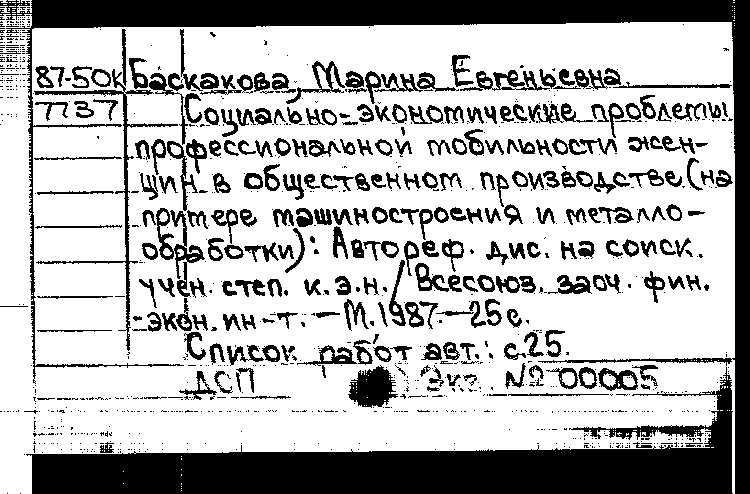 87-50к Баскакова, Марина Евгеньевна.
7737 Социально-экономические проблемы
профессиональной мобильности жен-
щин в общественном производстве (на
примере машиностроения и металло-
обработки): Автореф. дис. на соиск.
учен. степ. к.э.н. / Всесоюз. заоч. фин.
-экон. ин-т. - М. 1987. - 25 с.
Список работ авт.: с.25.
ДСП Экз. №00005